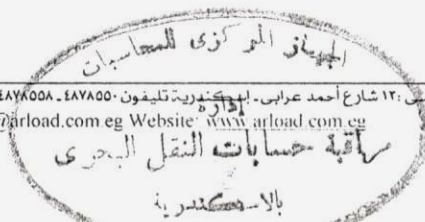 الجهاز المركزى للمحاسبات
١٢ شارع أحمد عرابى - إسكندرية تليفون ٤٨٧٨٥٥٠ - ٤٨٧٨٥٥٨
@arload.com eg Website: www.arload.com eg
إدارة
مراقبة حسابات النقل البحرى
بالاسكندرية